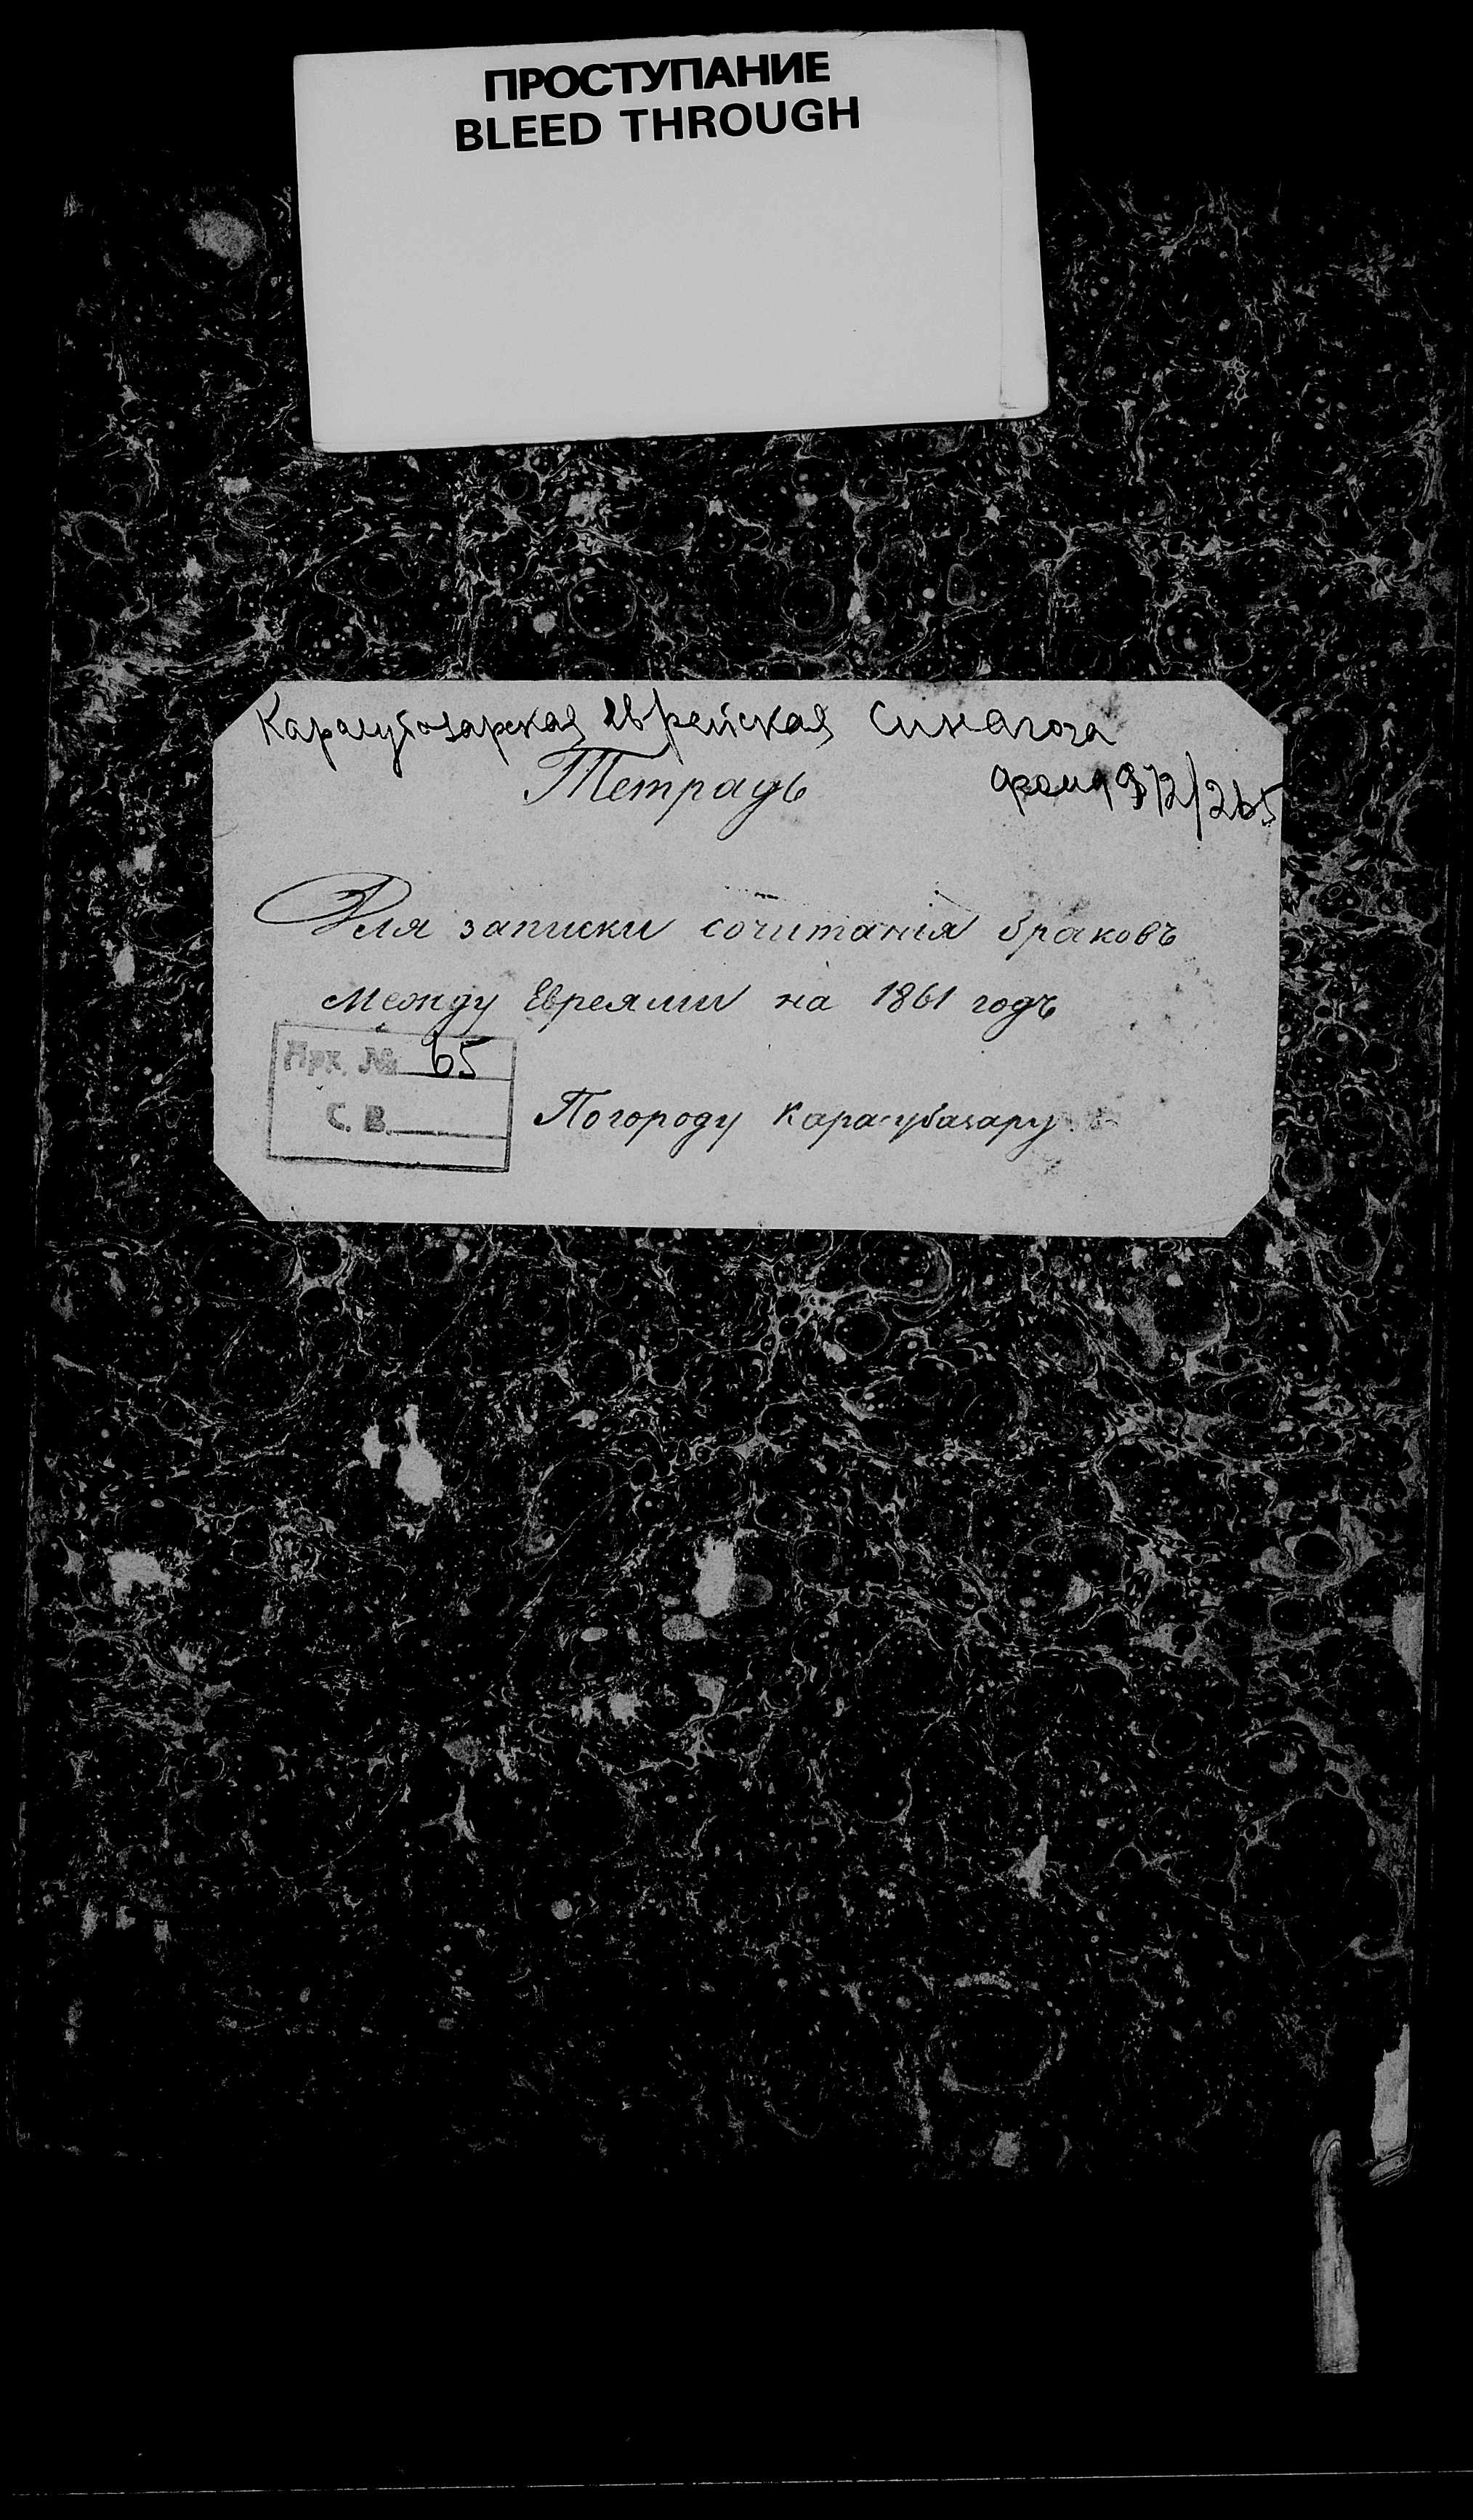 ПРОСТУПАНИЕ
BLEED THROUGH
Карасубазарская еврейская синагога
Тетрадь
фонд
Для записки сочитания браковъ
между Евреями на 1861 годъ
Арх. № 65
С. В.
Погороду Карасубазару